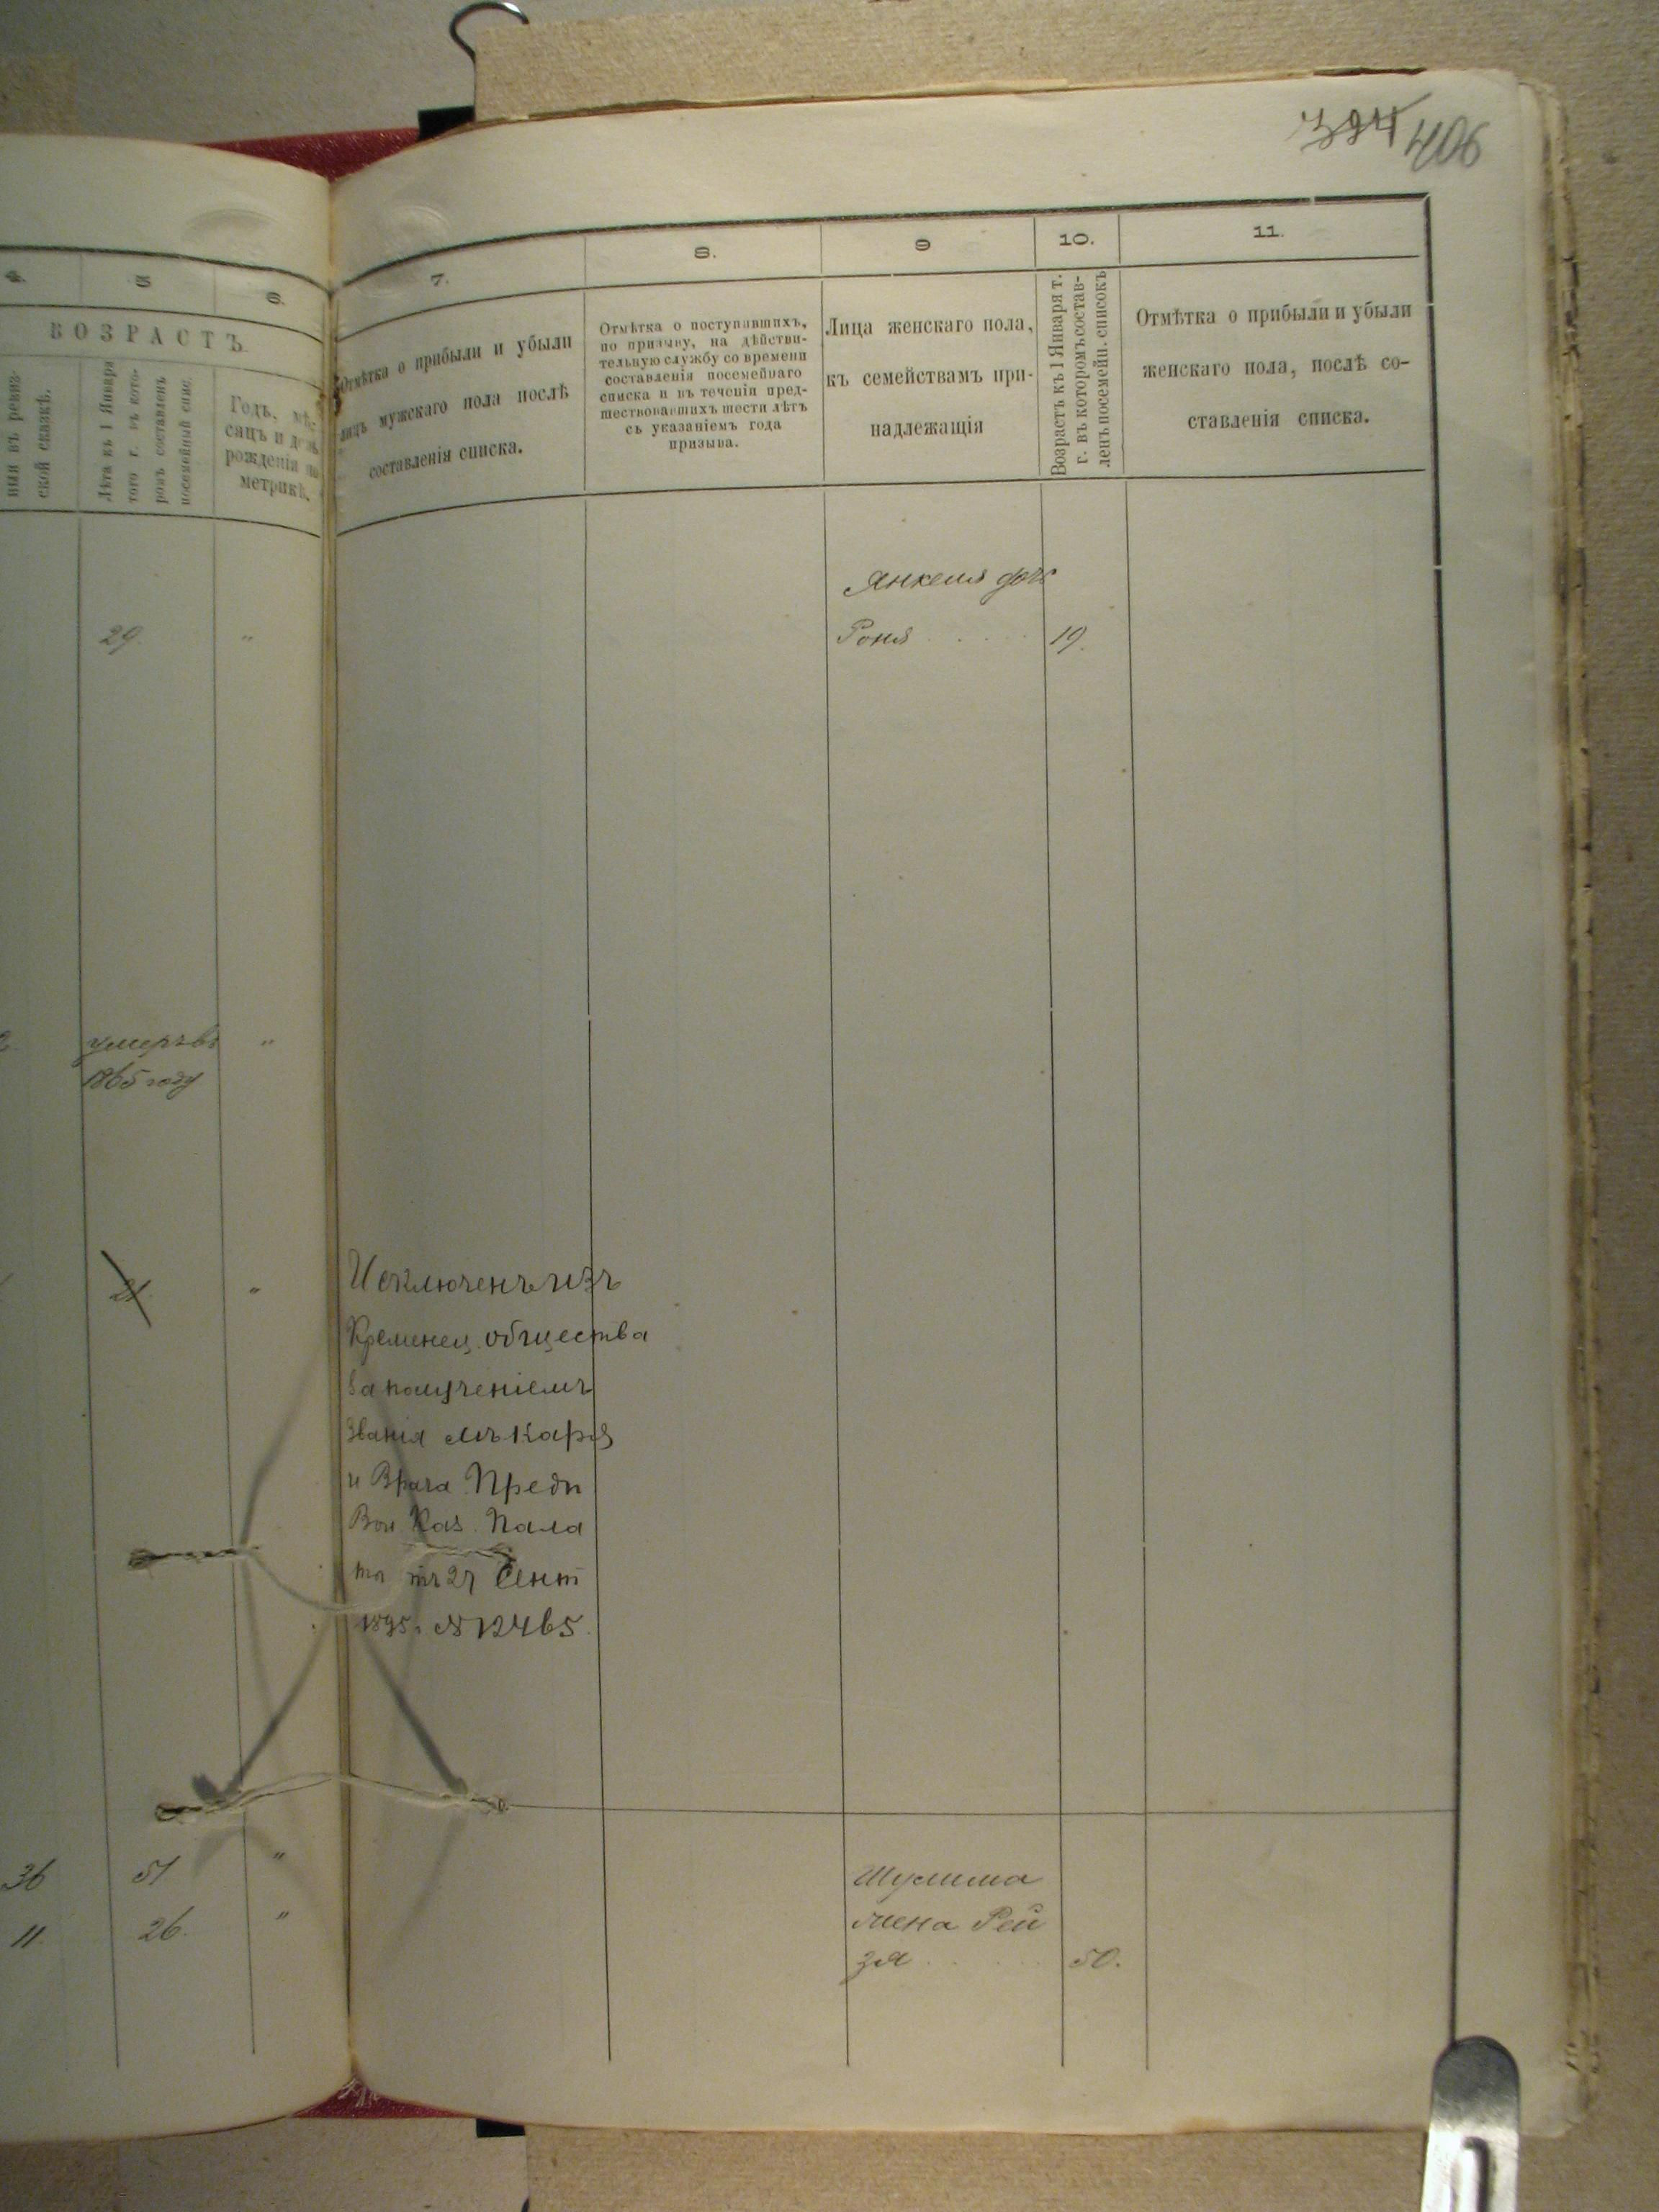 394 406
4. 5 6.
ВОЗРАСТЪ.
ской сказкѣ.
Лѣта къ 1 Января
того г. въ кото-
ромъ составленъ
посемейный спис.
Годъ, мѣ-
сяцъ и день
рожденія по
метрикѣ.
7. 8. 9 10. 11.
Отмѣтка о прибыли и убыли
лицъ мужскаго пола послѣ
составленія списка.
Отмѣтка о поступившихъ,
по призыву, на дѣйстви-
тельную службу со времени
составленія посемейнаго
списка и въ теченіи пред-
шествовавшихъ шести лѣтъ
съ указаніемъ года
призыва.
Лица женскаго пола,
къ семействамъ при-
надлежащія
Возрастъ къ 1 Января т.
г. въ которомъ состав-
ленъ посемейн. списокъ
Отмѣтка о прибыли и убыли
женскаго пола, послѣ со-
ставленія списка.
Янкеля доч
29. " Роня . . . . . 19.
умеръ въ "
1865 году
21 "
Исключенъ изъ
Кременец. общества
за полученіемъ
званія лѣкаря
и Врача. Предп
Вол. Каз. Пала
ты 27 Сент
1895 г. № 12465.
36 51 " Шулима
11. 26. " жена Рей
зя . . . . . 50.